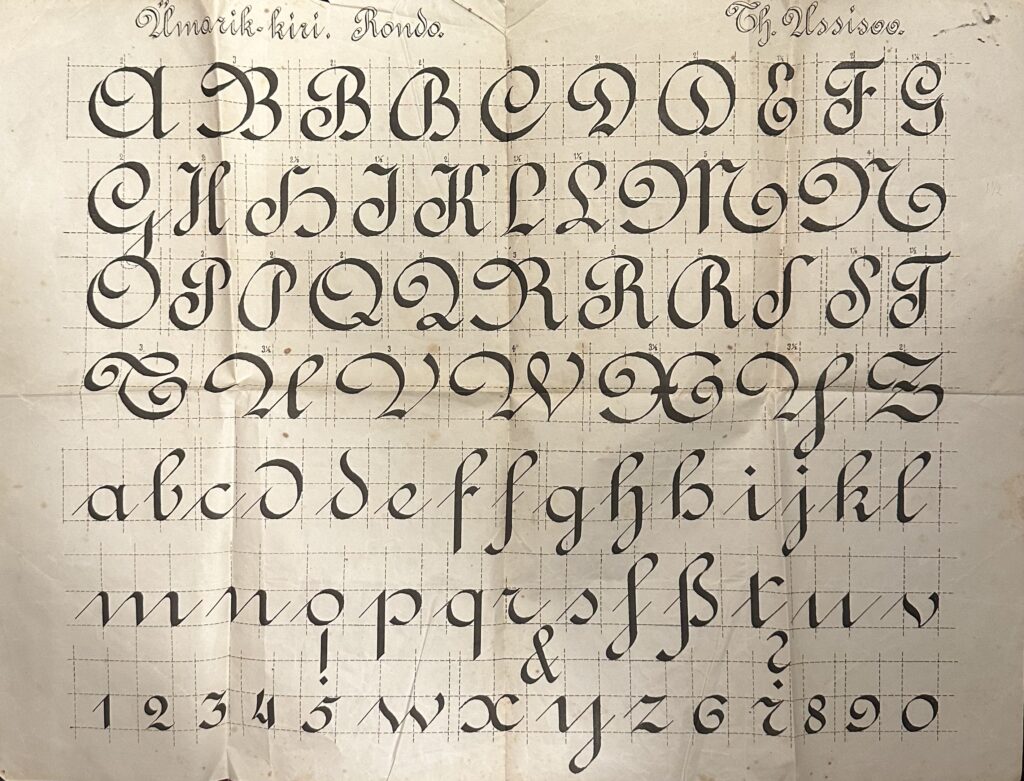 Ümarik-kiri. Rondo. Th. Ussisoo.
A B B B C D D E F G
G H H I K L L M N
O P P Q Q R R R S S T
T U V W X Y Z
a b c d d e f f g h h i j k l
m n o p q r s ſ ß t u v
! & ?
1 2 3 4 5 w x y z 6 7 8 9 0